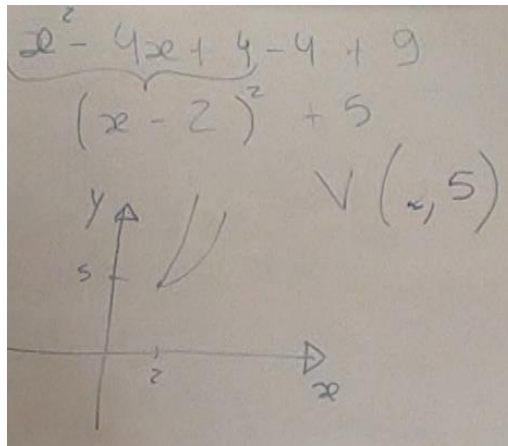 x² - 4x + 4 - 4 + 9
(x - 2)² + 5
V ( , 5)
y
5
2
x